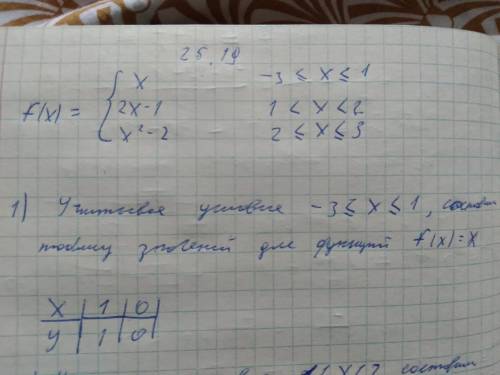 25.19
f(x) = { x   -3 ≤ x ≤ 1
2x-1   1 < x < 2
x²-2   2 ≤ x ≤ 3
1) Учитывая условие -3 ≤ x ≤ 1, составим
таблицу значений для функций f(x)=x
x | 1 | 0
y | 1 | 0
1 < x < 2 составим